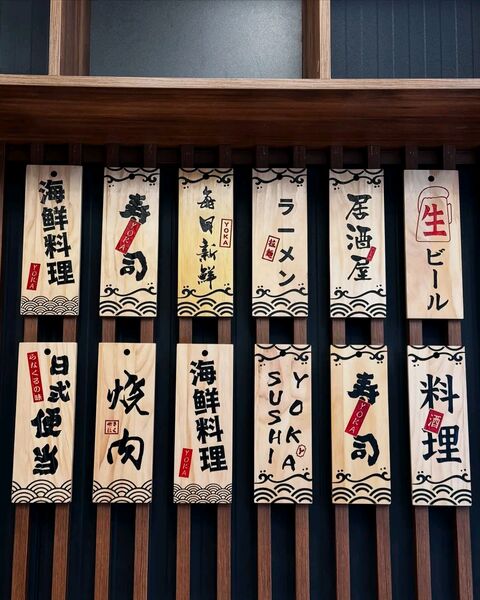 海鮮料理
YOKA
寿司
YOKA
毎日新鮮
YOKA
ラーメン
拉麺
居酒屋
YOKA
生
ビール
日式便当
焼肉
海鮮料理
YOKA
YOKA
SUSHI
Y
寿司
YOKA
料理
酒